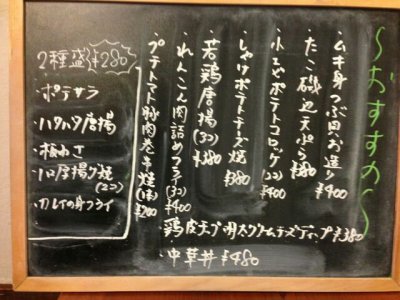 〜おすすめ〜
・ムキ身つぶ貝お造り ¥400
・たこ磯辺天ぷら ¥380
・小えびポテトコロッケ(2コ) ¥400
・しゃけポテトチーズ焼 ¥380
・若鶏唐揚(3コ) ¥380
・れんこん肉詰めフライ(3コ) ¥400
・プチトマト豚肉巻串焼(1本) ¥200
・鶏皮
チーズディップ ¥380
・中華丼 ¥480
2種盛 ¥280
・ポテサラ
・ハタハタ唐揚
・板わさ
(2コ)
・カレイの身フライ